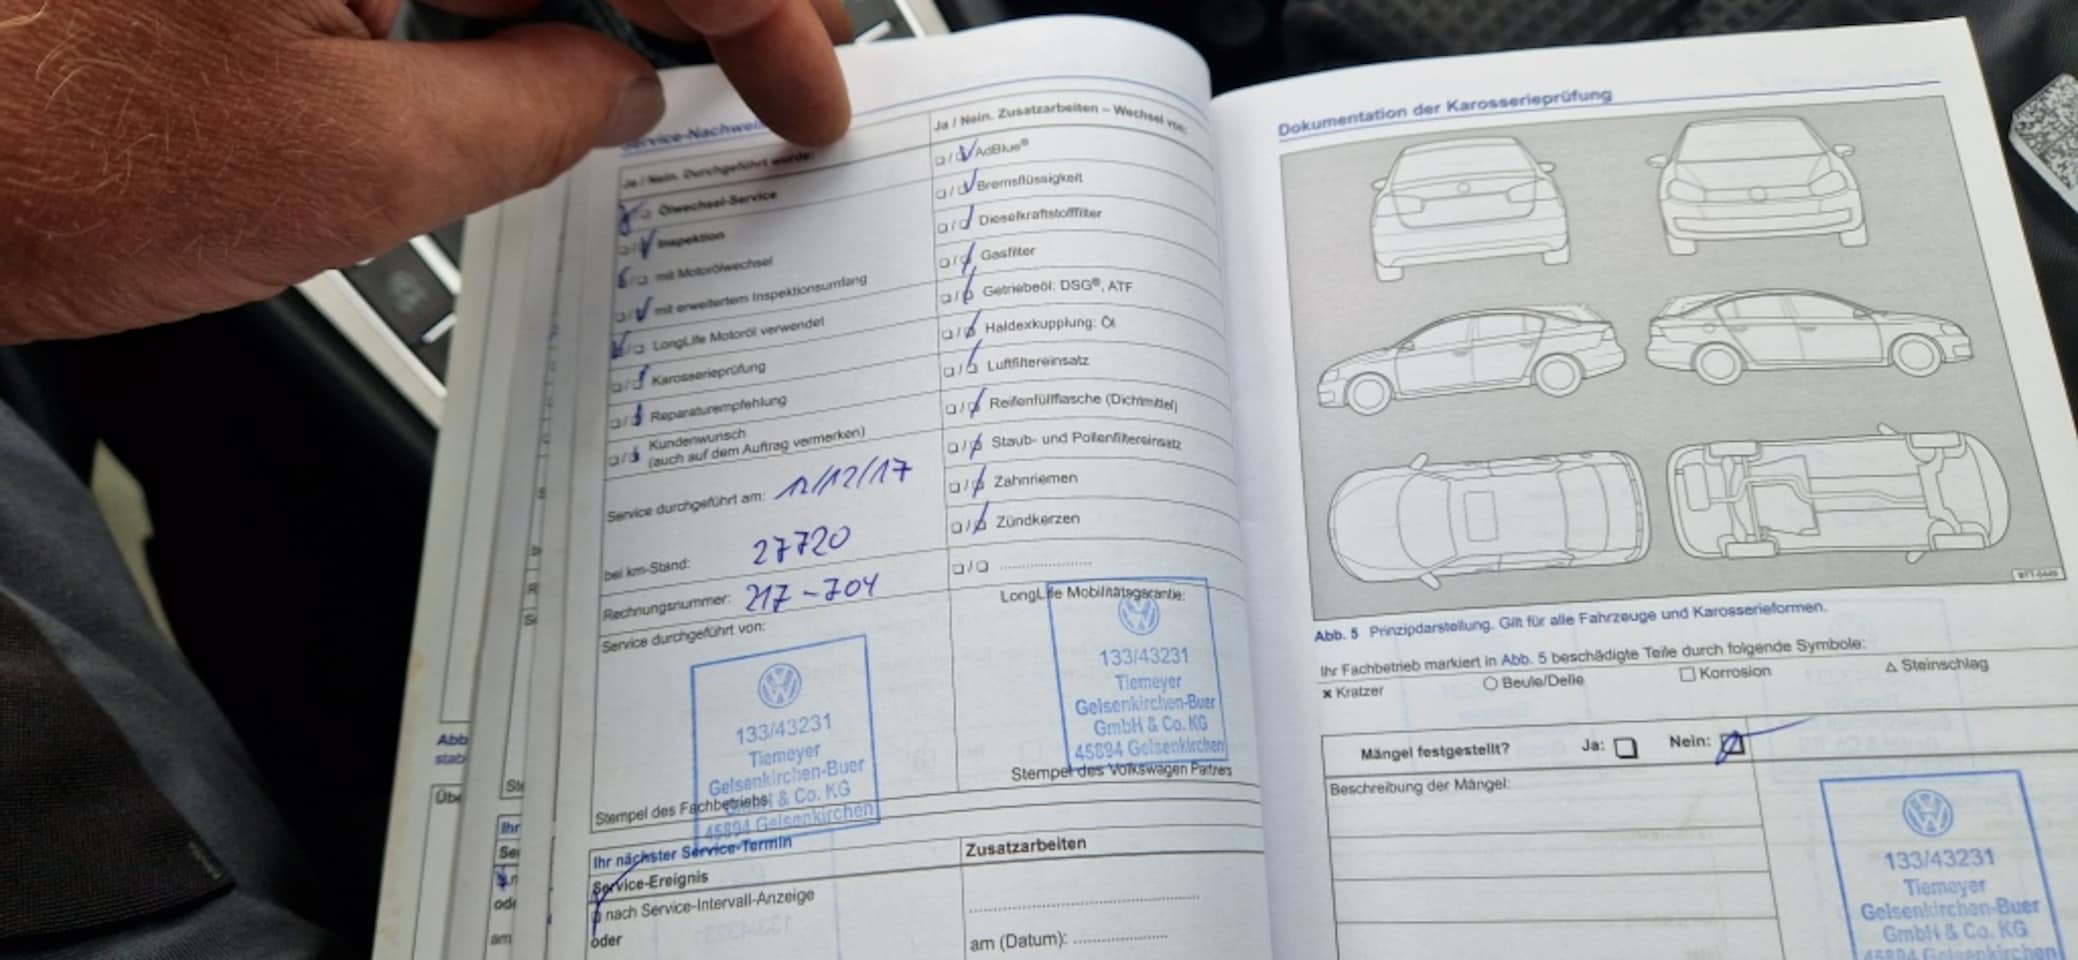 Service-Nachweis
Ja / Nein. Durchgeführt wurde:
Ölwechsel-Service
Inspektion
mit Motorölwechsel
mit erweitertem Inspektionsumfang
LongLife Motoröl verwendet
Karosserieprüfung
Reparaturempfehlung
Kundenwunsch
(auch auf dem Auftrag vermerken)
Service durchgeführt am: 12/12/17
bei km-Stand: 27720
Rechnungsnummer: 217-704
Service durchgeführt von:
133/43231
Tiemeyer
Gelsenkirchen-Buer
GmbH & Co. KG
45894 Gelsenkirchen
Stempel des Fachbetriebs
Ihr nächster Service-Termin
Service-Ereignis
nach Service-Intervall-Anzeige
oder
Ja / Nein. Zusatzarbeiten – Wechsel von:
AdBlue®
Bremsflüssigkeit
Dieselkraftstofffilter
Gasfilter
Getriebeöl: DSG®, ATF
Haldexkupplung: Öl
Luftfiltereinsatz
Reifenfüllflasche (Dichtmittel)
Staub- und Pollenfiltereinsatz
Zahnriemen
Zündkerzen
LongLife Mobilitätsgarantie:
133/43231
Tiemeyer
Gelsenkirchen-Buer
GmbH & Co. KG
45894 Gelsenkirchen
Stempel des Volkswagen Partners
Zusatzarbeiten
am (Datum):
Dokumentation der Karosserieprüfung
Abb. 5 Prinzipdarstellung. Gilt für alle Fahrzeuge und Karosserieformen.
Ihr Fachbetrieb markiert in Abb. 5 beschädigte Teile durch folgende Symbole:
× Kratzer ○ Beule/Delle □ Korrosion △ Steinschlag
Mängel festgestellt? Ja: Nein:
Beschreibung der Mängel:
133/43231
Tiemeyer
Gelsenkirchen-Buer
GmbH & Co. KG
45894 Gelsenkirchen